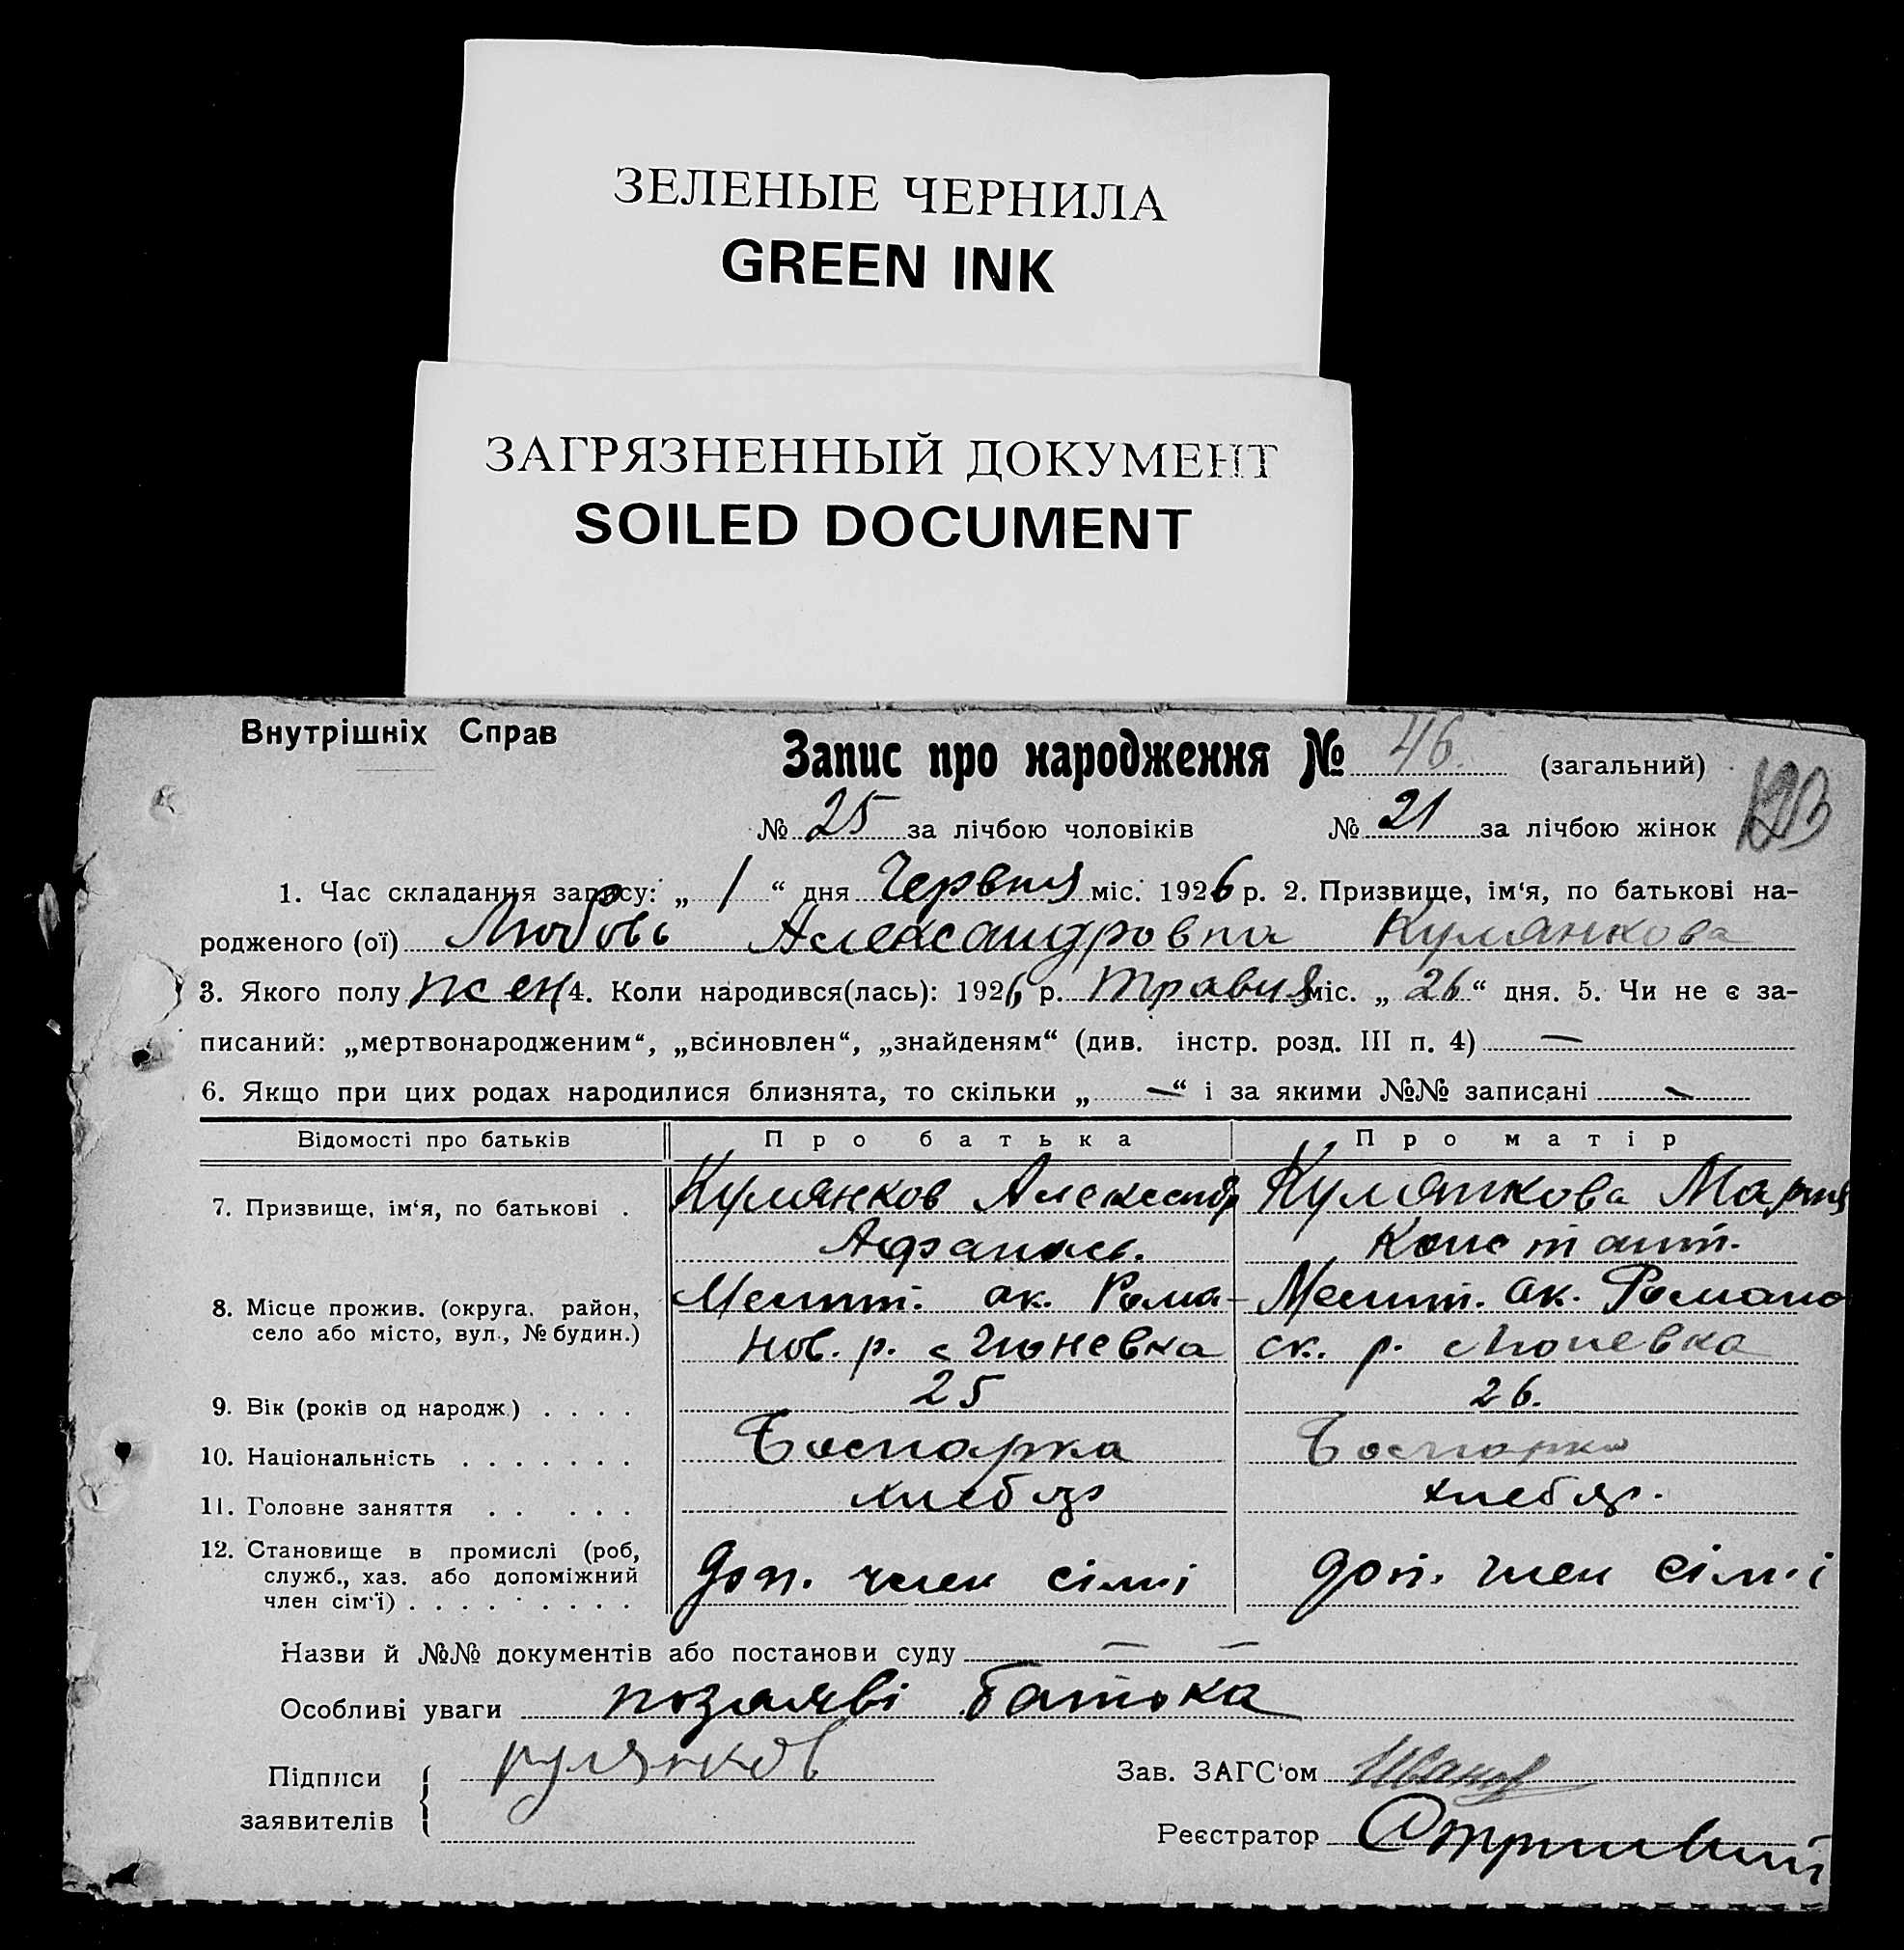 ЗЕЛЕНЫЕ ЧЕРНИЛА
GREEN INK
ЗАГРЯЗНЕННЫЙ ДОКУМЕНТ
SOILED DOCUMENT
Внутрішніх Справ
Запис про народження № 46. (загальний)
№ 25 за лічбою чоловіків № 21 за лічбою жінок
1. Час складання запису: „ 1 “ дня Червня міс. 1926 р. 2. Призвище, ім‘я, по батькові на-
родженого (ої) Любовь Александровна Кулянкова
3. Якого полу жен 4. Коли народився(лась): 1926 р. травня міс. „ 26 “ дня. 5. Чи не є за-
писаний: „мертвонародженим“, „всиновлен“, „знайденям“ (див. інстр. розд. III п. 4) —
6. Якщо при цих родах народилися близнята, то скільки „ — “ і за якими №№ записані —
Відомості про батьків Про батька Про матір
7. Призвище, ім‘я, по батькові . Кулянков Александр Кулянкова Мария
Афанась. Констант.
8. Місце прожив. (округа, район, Мелит. ок. Рома- Мелит. ок. Романо
село або місто, вул., № будин.) нов. р. ск. р.
9. Вік (років од народж) . . . . 25 26.
10. Національність . . . . . . .
11. Головне заняття . . . . . хлебор хлебор.
12. Становище в промислі (роб,
служб., хаз. або допоміжний доп. член сімі доп. член сімі
член сім‘ї) . . . . . . . . .
Назви й №№ документів або постанови суду — —
Особливі уваги позаяві батька
Підписи Кулянков Зав. ЗАГС‘ом Иванов
заявителів Реєстратор